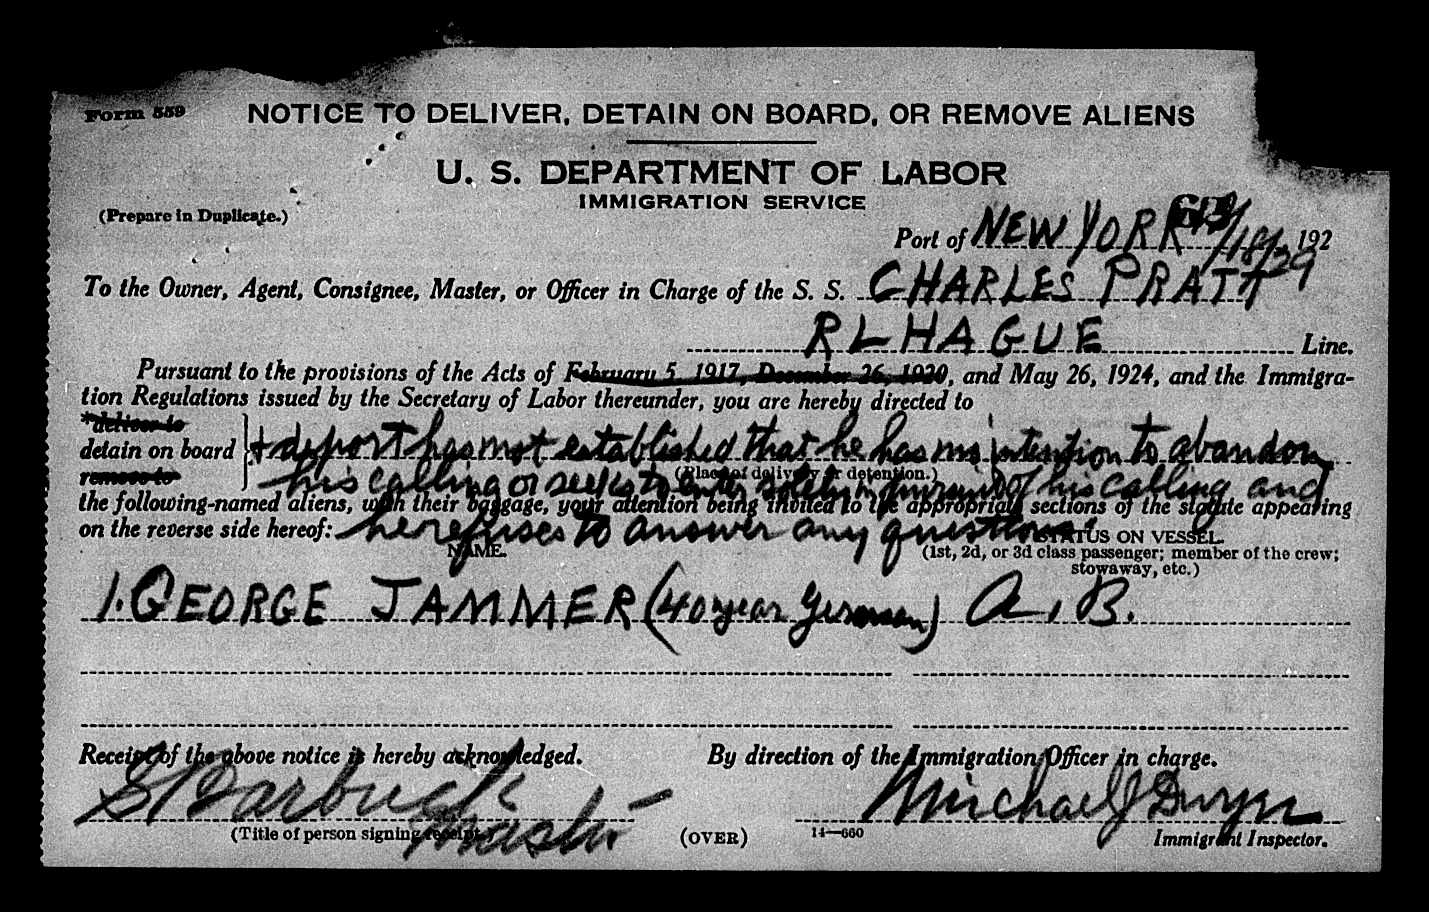 Form 559 NOTICE TO DELIVER, DETAIN ON BOARD, OR REMOVE ALIENS
U. S. DEPARTMENT OF LABOR
IMMIGRATION SERVICE
(Prepare in Duplicate.)
Port of NEW YORK 3/18/29, 192
To the Owner, Agent, Consignee, Master, or Officer in Charge of the S. S. CHARLES PRATT
R L HAGUE Line.
Pursuant to the provisions of the Acts of February 5, 1917, December 26, 1920, and May 26, 1924, and the Immigra-
tion Regulations issued by the Secretary of Labor thereunder, you are hereby directed to
*deliver to
detain on board } + deport has not established that he has no intention to abandon
(Place of delivery or detention.)
remove to his calling or seeks to enter solely in pursuit of his calling and
the following-named aliens, with their baggage, your attention being invited to the appropriate sections of the statute appearing
on the reverse side hereof: he refuses to answer any questions.
NAME. STATUS ON VESSEL
(1st, 2d, or 3d class passenger; member of the crew;
stowaway, etc.)
1. GEORGE JAMMER (40 year German) A. B.
Receipt of the above notice is hereby acknowledged. By direction of the Immigration Officer in charge.
Master Michael J Dwyer
(Title of person signing receipt.) (OVER) 14—660 Immigrant Inspector.